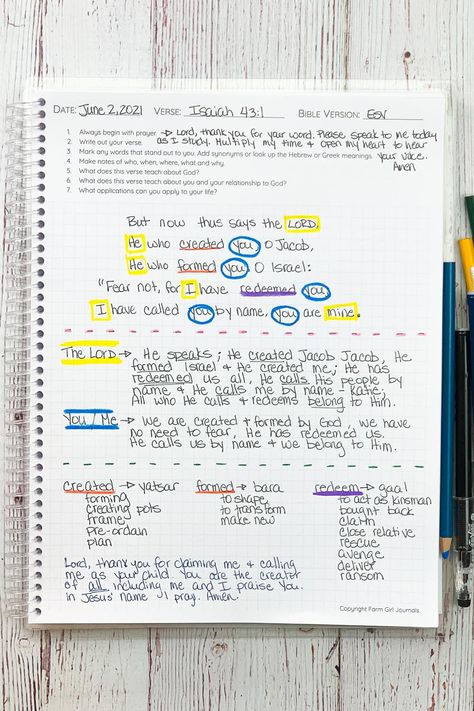 DATE: June 2, 2021 VERSE: Isaiah 43:1 BIBLE VERSION: ESV
1. Always begin with prayer. → Lord, thank you for your word. Please speak to me today
2. Write out your verse. as I study. Multiply my time & open my heart to hear
3. Mark any words that stand out to you. Add synonyms or look up the Hebrew or Greek meanings. your voice.
4. Make notes of who, when, where, what and why. Amen
5. What does this verse teach about God?
6. What does this verse teach about you and your relationship to God?
7. What applications can you apply to your life?
But now thus says the LORD,
He who created you, O Jacob,
He who formed you, O Israel:
"Fear not, for I have redeemed you,
I have called you by name, you are mine.
The Lord → He speaks; He created Jacob Jacob, He
formed Israel & He created me; He has
redeemed us all, He calls His people by
name & He calls me by name - Katie;
All who He calls & redeems belong to Him.
You/Me → We are created & formed by God, we have
no need to fear, He has redeemed us.
He calls us by name & we belong to Him.
created → yatsar
forming
creating pots
frame
pre-ordain
plan
formed → bara
to shape
to transform
make new
redeem → gaal
to act as kinsman
bought back
claim
close relative
rescue
avenge
deliver
ransom
Lord, thank you for claiming me & calling
me as your child. You are the creator
of all including me and I praise You.
In Jesus' name I pray. Amen.
Copyright Farm Girl Journals